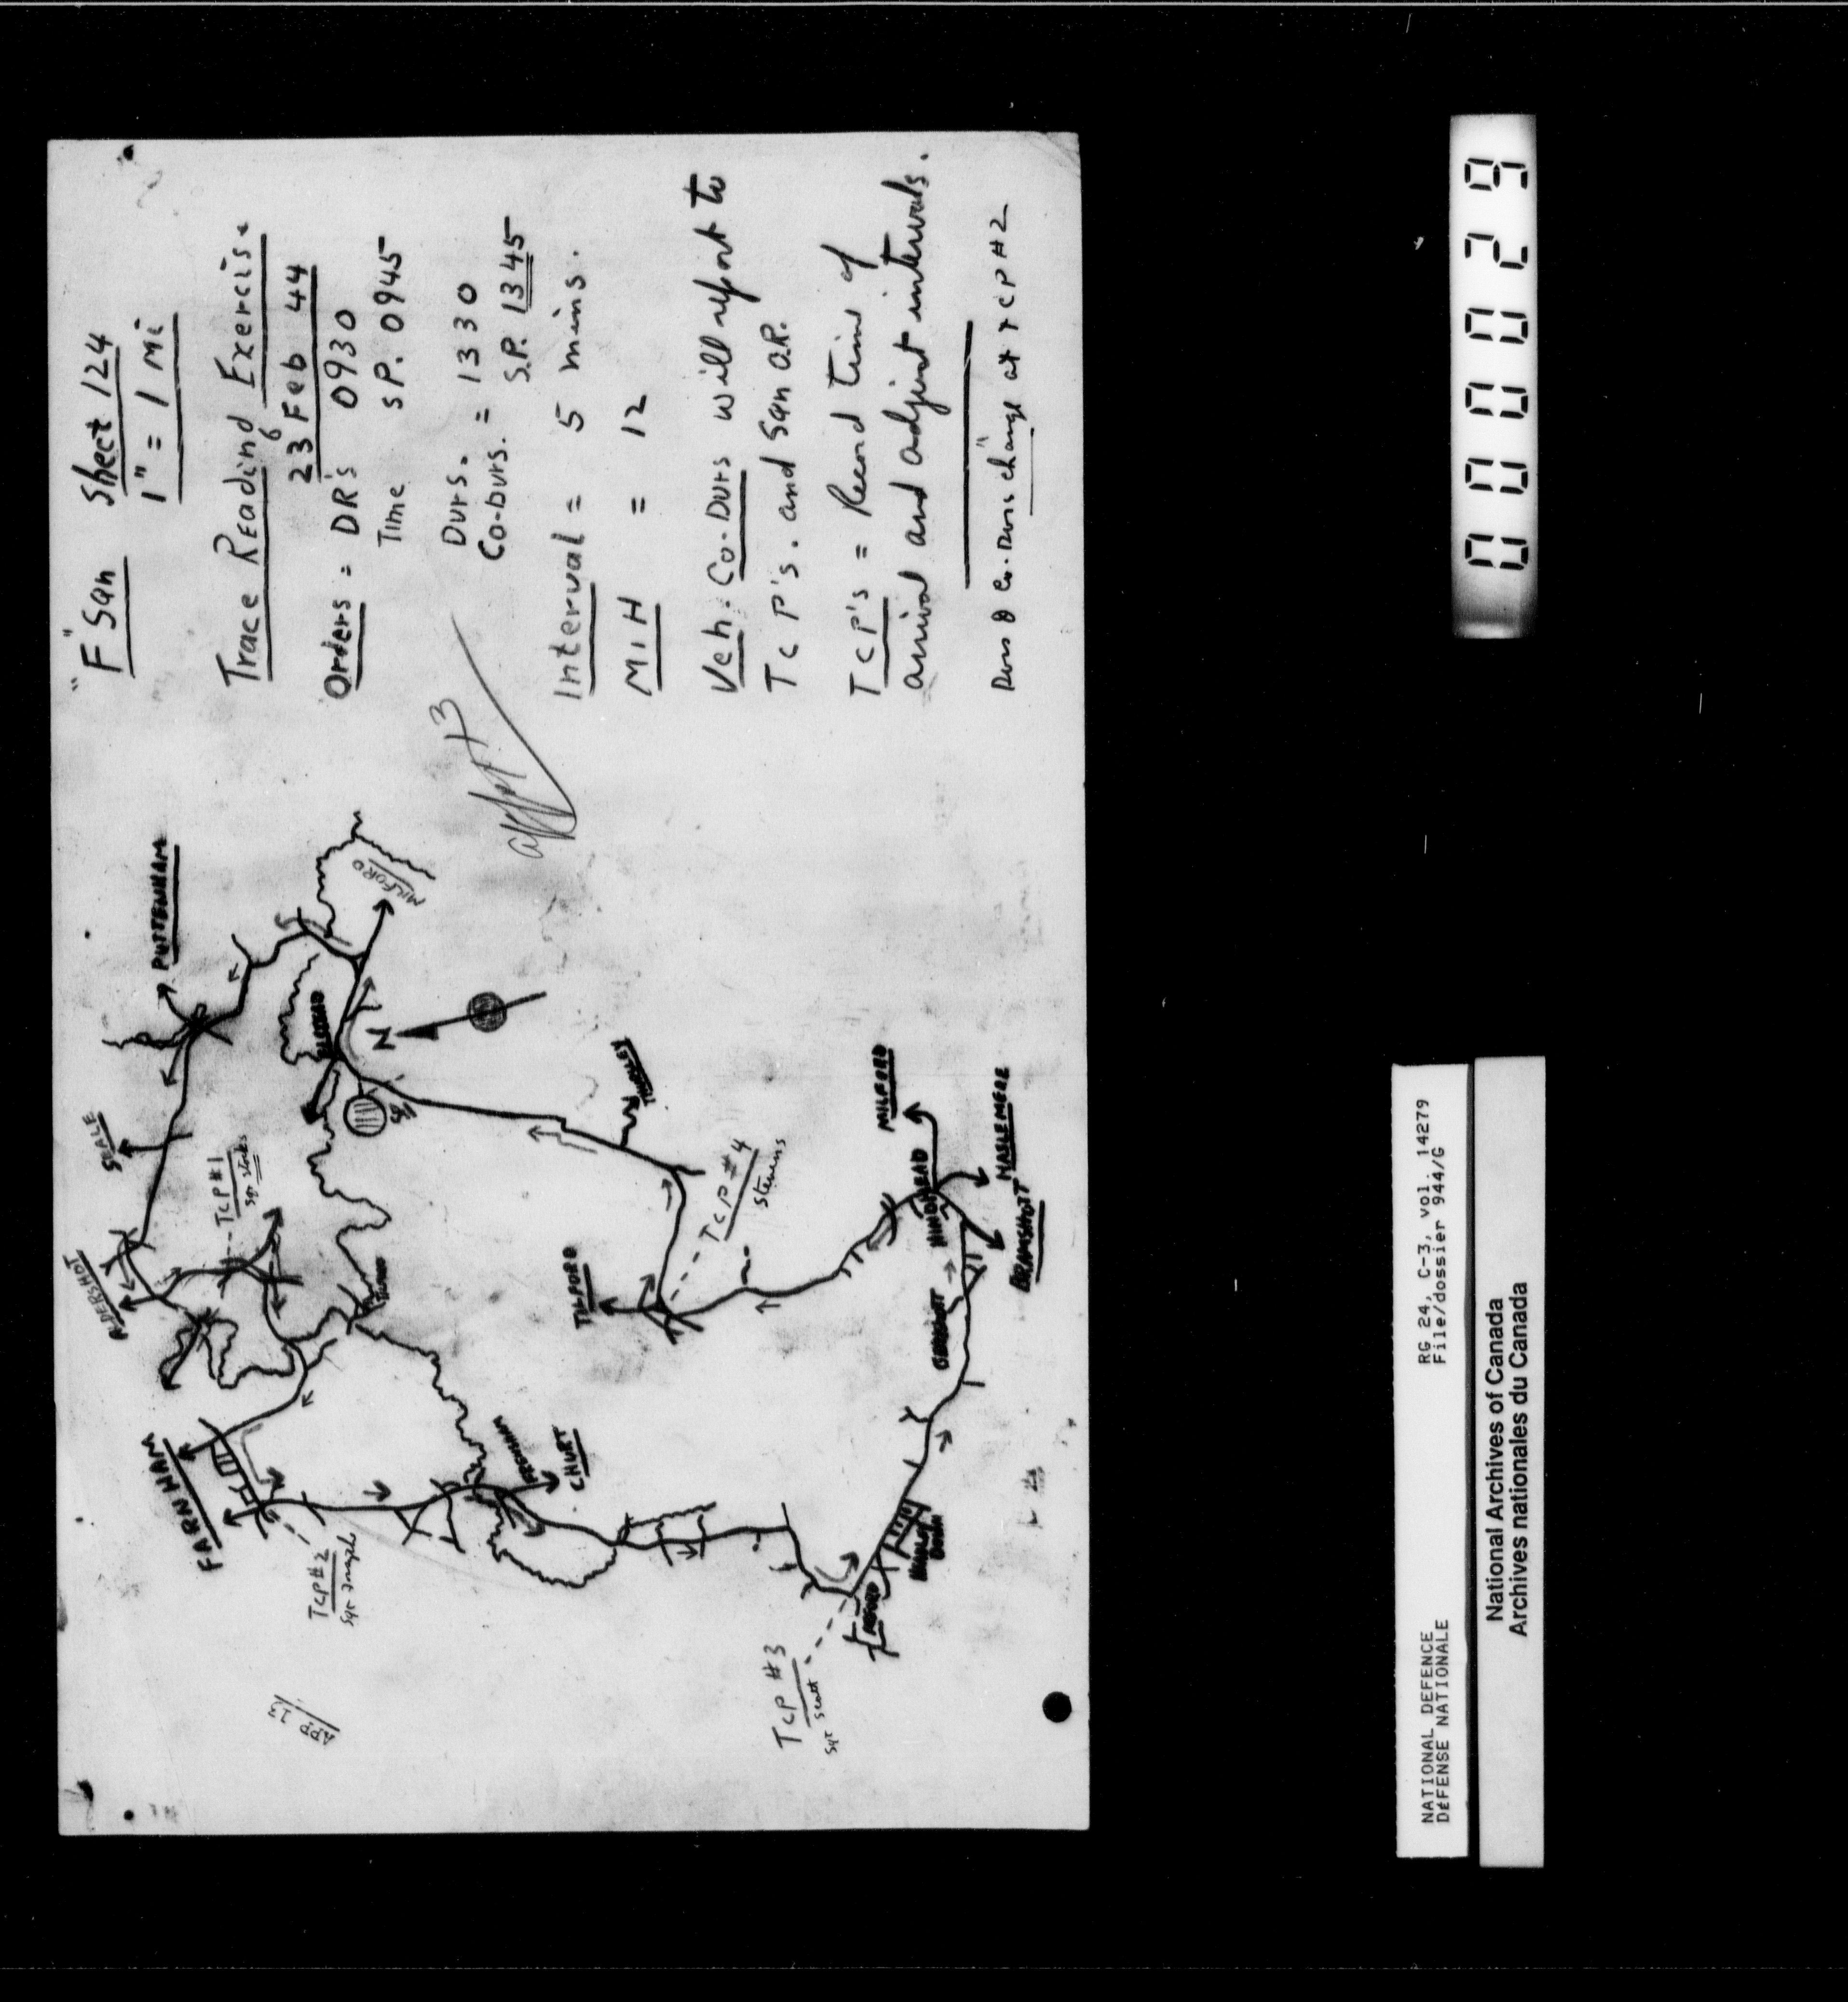 "F" Sqn Sheet 124
1" = 1 Mi
Trace Reading Exercise
23 Feb 44
Orders = DR's 0930
Time S.P. 0945
Dvrs.
Co-Dvrs. = 1330
S.P. 1345
Interval = 5 mins.
M.I.H = 12
Veh. Co-Dvrs will report to
TCP's. and Sqn O.R.
TCP's = Record time of
arrival and adjust intervals.
Dvrs & Co-Dvrs change at TCP #2
13
PUTTENHAM
MILFORD
SEALE
TCP #1
ALDERSHOT
N
SP
ELSTEAD
THURSLEY
TCP #4
Stevens
TILFORD
MILFORD
HINDHEAD
HASLEMERE
BRAMSHOTT
GRAYSHOTT
FARNHAM
TCP #2
FRENSHAM
CHURT
HEADLEY
DOWN
TCP #3
Sgt Scott
000029
NATIONAL DEFENCE RG 24, C-3, vol. 14279
DéFENSE NATIONALE File/dossier 944/G
National Archives of Canada
Archives nationales du Canada